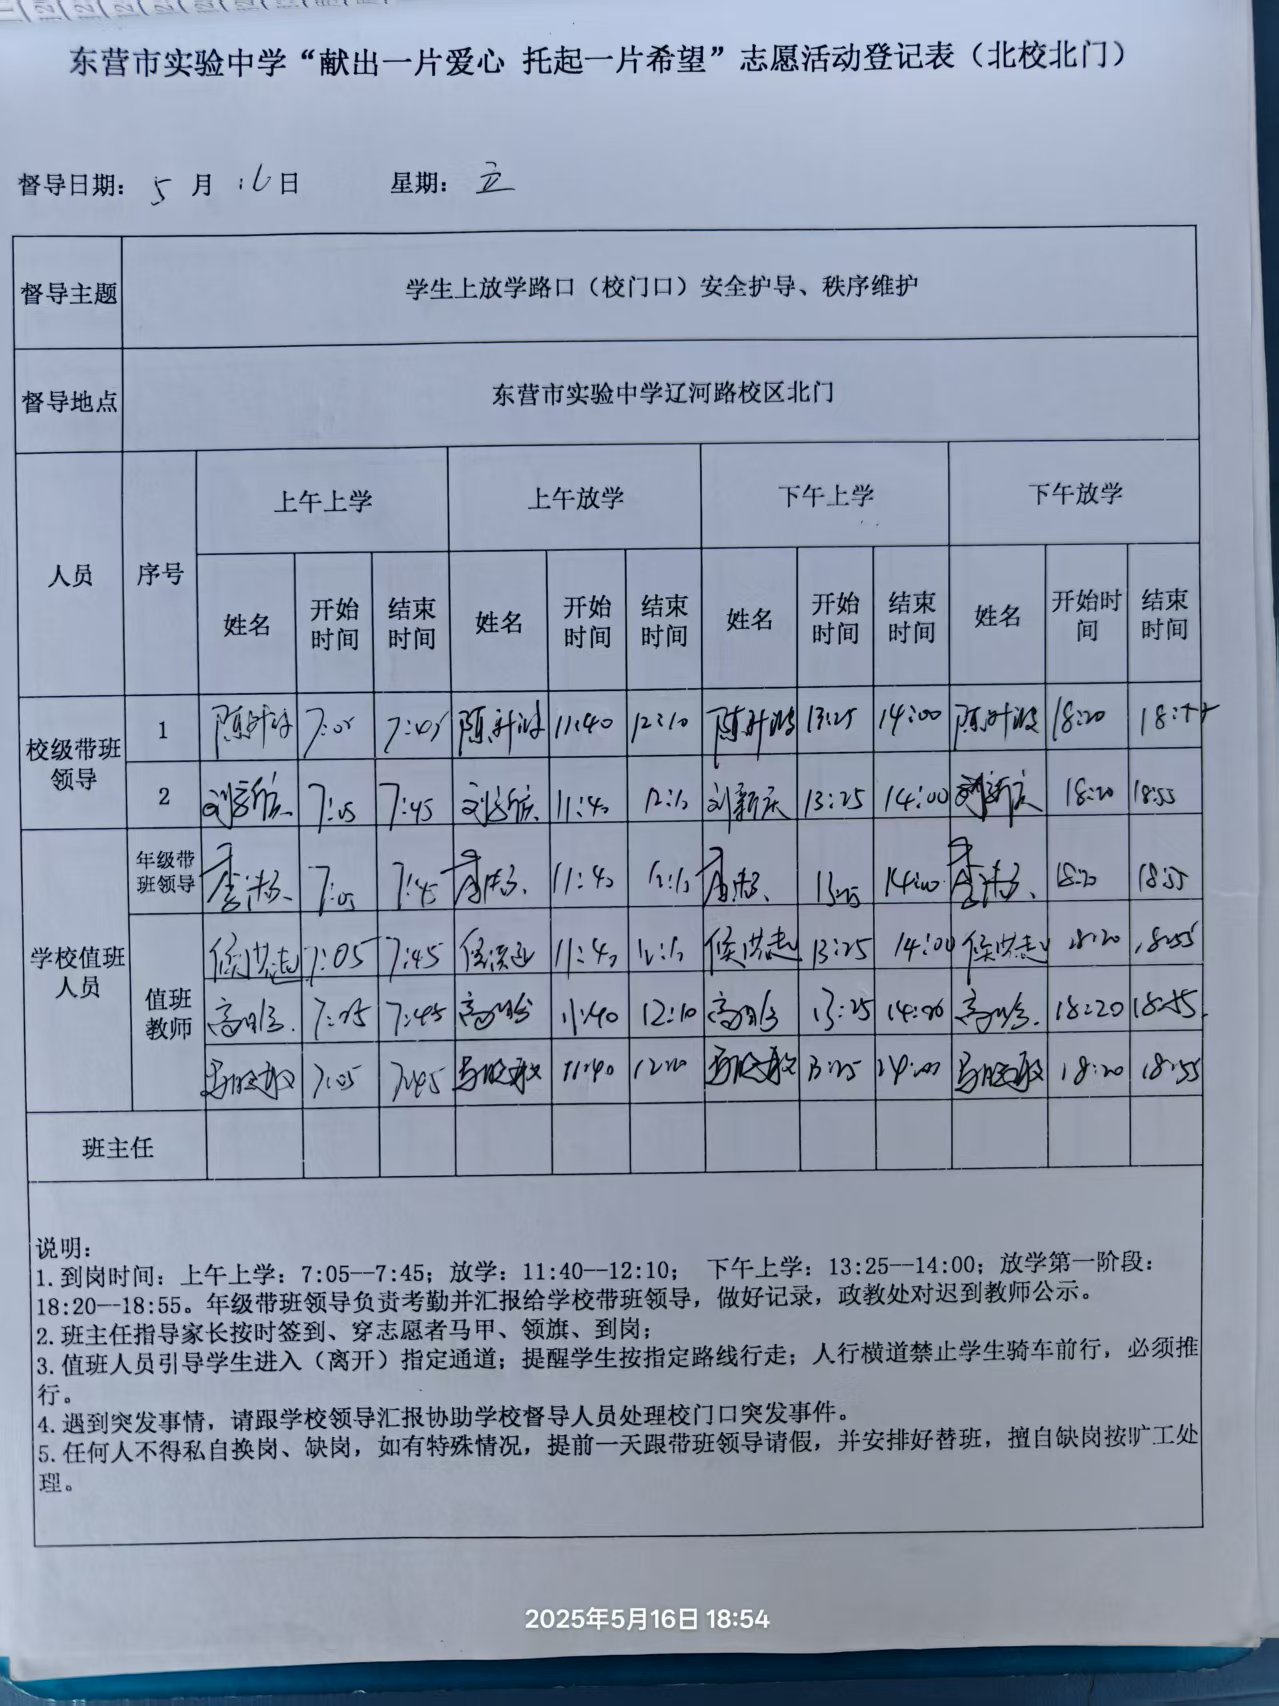 东营市实验中学“献出一片爱心 托起一片希望”志愿活动登记表（北校北门）
督导日期： 5 月 16 日 星期： 五
督导主题 学生上放学路口（校门口）安全护导、秩序维护
督导地点 东营市实验中学辽河路校区北门
人员 序号 上午上学 上午放学 下午上学 下午放学
姓名 开始时间 结束时间 姓名 开始时间 结束时间 姓名 开始时间 结束时间 姓名 开始时间 结束时间
校级带班领导
1 7:05 7:45 11:40 12:10 13:25 14:00 18:20 18:55
2 刘新庆 7:05 7:45 刘新庆 11:40 12:10 刘新庆 13:25 14:00 刘新庆 18:20 18:55
学校值班人员
年级带班领导 7:05 7:45 11:40 12:10 13:25 14:00 18:20 18:55
值班教师
侯洪志 7:05 7:45 11:40 12:10 侯洪志 13:25 14:00 侯洪志 18:20 18:55
7:05 7:45 11:40 12:10 13:25 14:00 18:20 18:55
7:05 7:45 11:40 12:10 13:25 14:00 18:20 18:55
班主任
说明：
1.到岗时间：上午上学：7:05--7:45；放学：11:40--12:10； 下午上学：13:25--14:00；放学第一阶段：
18:20--18:55。年级带班领导负责考勤并汇报给学校带班领导，做好记录，政教处对迟到教师公示。
2.班主任指导家长按时签到、穿志愿者马甲、领旗、到岗；
3.值班人员引导学生进入（离开）指定通道；提醒学生按指定路线行走；人行横道禁止学生骑车前行，必须推
行。
4.遇到突发事情，请跟学校领导汇报协助学校督导人员处理校门口突发事件。
5.任何人不得私自换岗、缺岗，如有特殊情况，提前一天跟带班领导请假，并安排好替班，擅自缺岗按旷工处
理。
2025年5月16日 18:54